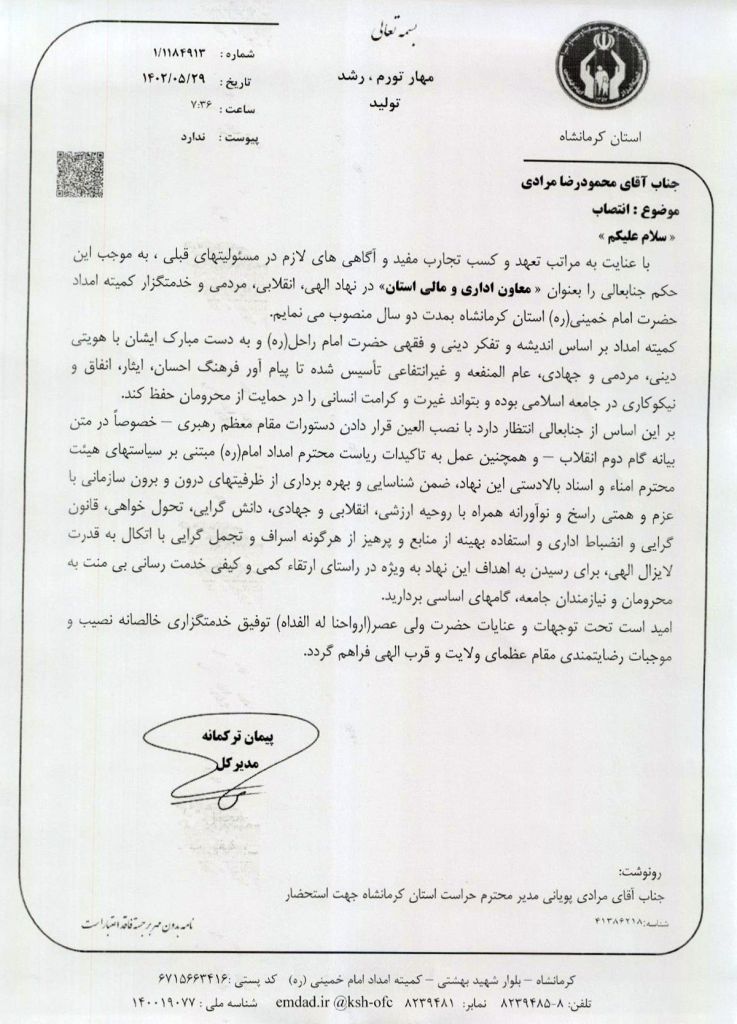 بسمه تعالی
مهار تورم ، رشد
تولید
شماره : ۱/۱۱۸۴۹۱۳
تاریخ : ۱۴۰۲/۰۵/۲۹
ساعت : ۷:۳۶
پیوست : ندارد
استان کرمانشاه
جناب آقای محمودرضا مرادی
موضوع : انتصاب
« سلام علیکم »
با عنایت به مراتب تعهد و کسب تجارب مفید و آگاهی های لازم در مسئولیتهای قبلی ، به موجب این
حکم جنابعالی را بعنوان « معاون اداری و مالی استان» در نهاد الهی، انقلابی، مردمی و خدمتگزار کمیته امداد
حضرت امام خمینی(ره) استان کرمانشاه بمدت دو سال منصوب می نمایم.
کمیته امداد بر اساس اندیشه و تفکر دینی و فقهی حضرت امام راحل(ره) و به دست مبارک ایشان با هویتی
دینی، مردمی و جهادی، عام المنفعه و غیرانتفاعی تأسیس شده تا پیام آور فرهنگ احسان، ایثار، انفاق و
نیکوکاری در جامعه اسلامی بوده و بتواند غیرت و کرامت انسانی را در حمایت از محرومان حفظ کند.
بر این اساس از جنابعالی انتظار دارد با نصب العین قرار دادن دستورات مقام معظم رهبری – خصوصاً در متن
بیانه گام دوم انقلاب – و همچنین عمل به تاکیدات ریاست محترم امداد امام(ره) مبتنی بر سیاستهای هیئت
محترم امناء و اسناد بالادستی این نهاد، ضمن شناسایی و بهره برداری از ظرفیتهای درون و برون سازمانی با
عزم و همتی راسخ و نوآورانه همراه با روحیه ارزشی، انقلابی و جهادی، دانش گرایی، تحول خواهی، قانون
گرایی و انضباط اداری و استفاده بهینه از منابع و پرهیز از هرگونه اسراف و تجمل گرایی با اتکال به قدرت
لایزال الهی، برای رسیدن به اهداف این نهاد به ویژه در راستای ارتقاء کمی و کیفی خدمت رسانی بی منت به
محرومان و نیازمندان جامعه، گامهای اساسی بردارید.
امید است تحت توجهات و عنایات حضرت ولی عصر(ارواحنا له الفداه) توفیق خدمتگزاری خالصانه نصیب و
موجبات رضایتمندی مقام عظمای ولایت و قرب الهی فراهم گردد.
پیمان ترکمانه
مدیرکل
رونوشت:
جناب آقای مرادی پویانی مدیر محترم حراست استان کرمانشاه جهت استحضار
شناسه: ۴۱۳۸۶۲۱۸
نامه بدون مهر برجسته فاقد اعتبار است
کرمانشاه – بلوار شهید بهشتی – کمیته امداد امام خمینی (ره) کد پستی :۶۷۱۵۶۶۳۴۱۶
تلفن: ۸-۸۲۳۹۴۸۵ نمابر: ۸۲۳۹۴۸۱ emdad.ir @ksh-ofc شناسه ملی : ۱۴۰۰۱۹۰۷۷